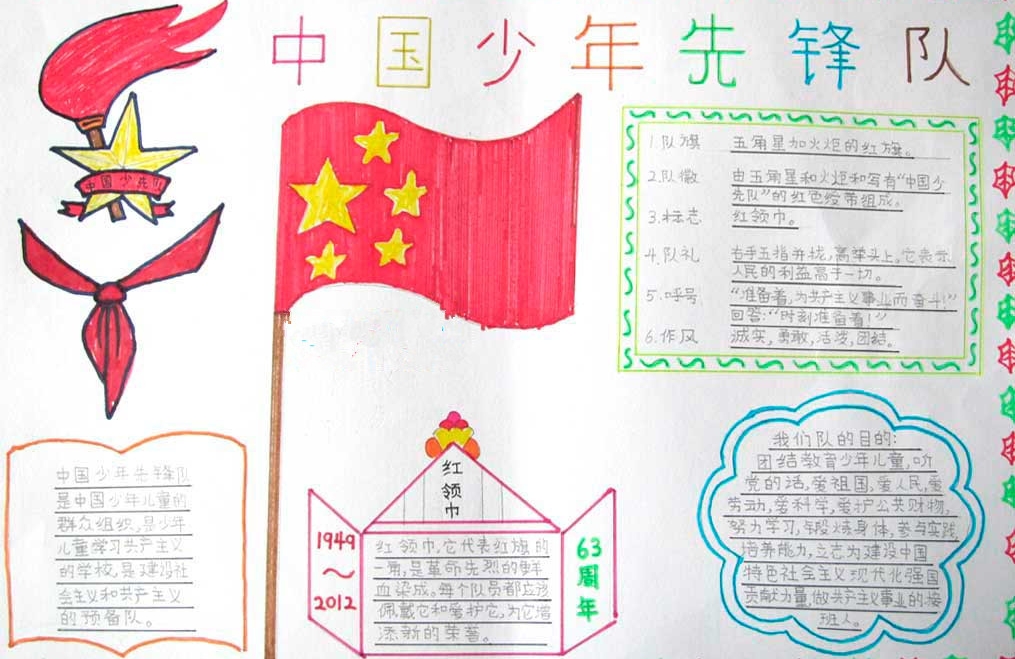 中国少年先锋队
中国少先队
1.队旗 五角星加火炬的红旗。
2.队徽 由五角星和火炬和写有“中国少
先队”的红色绶带组成。
3.标志 红领巾。
4.队礼 右手五指并拢,高举头上。它表示
人民的利益高于一切。
5.呼号 “准备着,为共产主义事业而奋斗!”
回答:“时刻准备着!”
6.作风 诚实,勇敢,活泼,团结。
中国少年先锋队
是中国少年儿童的
群众组织,是少年
儿童学习共产主义
的学校,是建设社
会主义和共产主义
的预备队。
红
领
巾
1949
~
2012
红领巾,它代表红旗的
一角,是革命先烈的鲜
血染成。每个队员都应该
佩戴它和爱护它,为它增
添新的荣誉。
63
周
年
我们队的目的:
团结教育少年儿童,听
党的话,爱祖国,爱人民,爱
劳动,爱科学,爱护公共财物,
努力学习,锻炼身体,参与实践,
培养能力,立志为建设中国
特色社会主义现代化强国
贡献力量,做共产主义事业的接
班人。